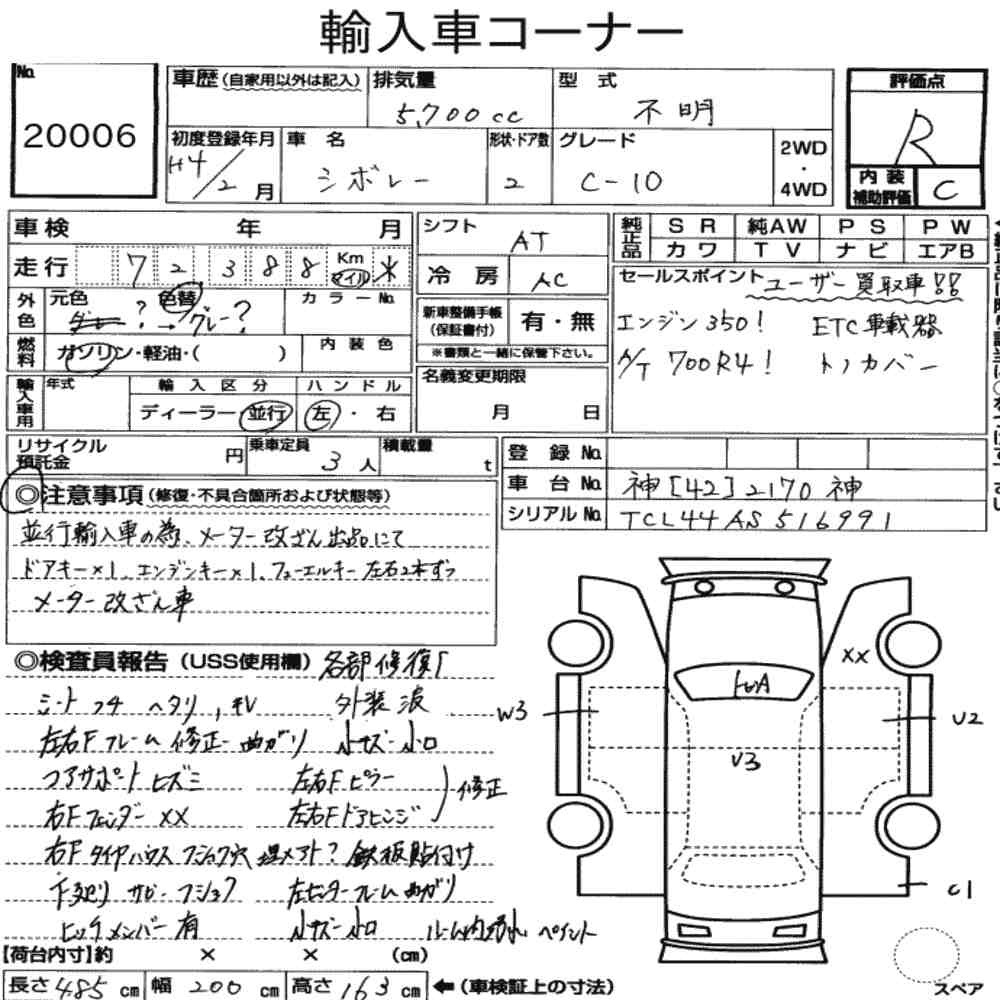 輸入車コーナー
No. 20006
車歴(自家用以外は記入) 排気量 5,700cc 型式 不明
初度登録年月 H4/2月 車名 シボレー 形状・ドア数 2 グレード C-10 2WD・4WD
評価点 R
内装補助評価 C
車検 年 月
走行 72388 Km マイル *
外色 元色 ? → 色替 グレー? カラーNo.
燃料 ガソリン・軽油・( ) 内装色
シフト AT
冷房 AC
新車整備手帳(保証書付) 有・無
※書類と一緒に保管下さい。
純正品 SR 純AW PS PW
カワ TV ナビ エアB
セールスポイント ユーザー買取車!!
エンジン350! ETC車載器
A/T 700R4! トノカバー
輸入車用 年式 輸入区分 ディーラー 並行 ハンドル 左・右
名義変更期限 月 日
リサイクル預託金 円 乗車定員 3人 積載量 t
登録No.
車台No. 神[42]2170神
シリアルNo. TCL44AS516991
◎注意事項(修復・不具合箇所および状態等)
並行輸入車の為、メーター改ざん出品にて
ドアキー×1、エンジンキー×1、フューエルキー左右2本ずつ
メーター改ざん車
◎検査員報告(USS使用欄) 各部修復
シート コゲ ヘタリ, キレ 外装 波
左右Fフレーム修正 曲がり 小サビ 小凹
コアサポートヒズミ 左右Fピラー
右Fフェンダー XX 左右Fドアヒンジ 修正
右Fタイヤハウス 穴埋メアト? 鉄板貼付け
下廻り サビ 左センターフレーム曲がり
ヒッチメンバー有 小サビ 小凹 ペイント
XX
W3
U2
U3
C1
【荷台内寸】約 × × (cm)
長さ 485 cm 幅 200 cm 高さ 163 cm ←(車検証上の寸法)
スペア